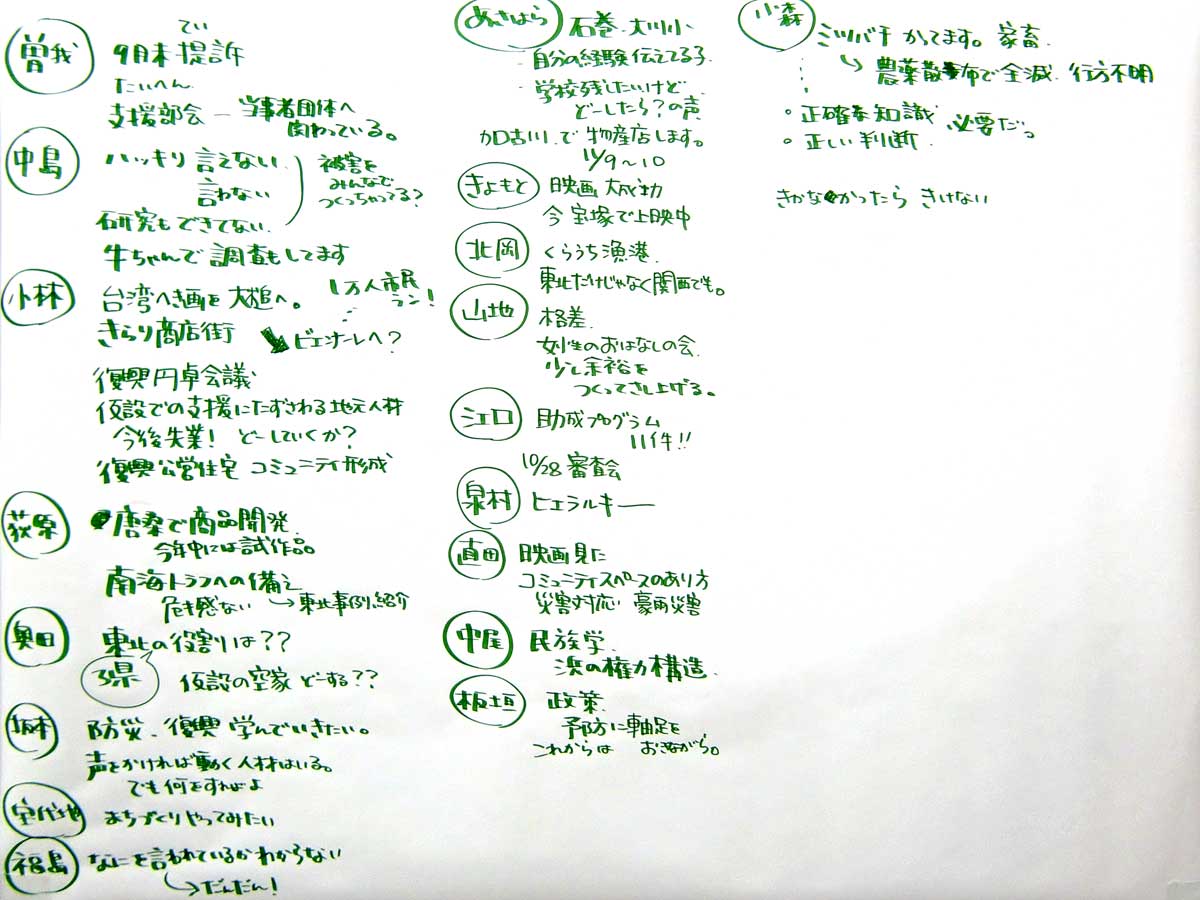 曽我
てい
9月末 提訴
たいへん
支援部会 ー 当事者団体へ
関わっている。
中島
ハッキリ 言えない
言わない
研究もできてない
被害を
みんなで
つくっちゃってる?
牛ちゃんで調査もしてます
小林
台湾へき画を 大槌へ。
1万人市民
ラン!
きらり商店街
ビエンナーレへ?
復興円卓会議
仮設での支援にたずさわる地元人材
今後失業! どーしていくか?
復興公営住宅 コミュニティ形成
荻原
唐桑で商品開発
今年中には試作品。
南海トラフへの備え
危キ感ない → 東北事例紹介
奥田
東北の役割りは??
3県
仮設の空家 どーする??
坂本
防災、復興 学んでいきたい。
声をかければ動く人材はいる。
でも何をすればよ
室代地
まちづくりやってみたい
福島
なにを言われているかわからない
→だんだん!
あさはら
石巻・大川小
・自分の経験伝えてる子
・学校残したいけど
どーしたら?の声
加古川で物産店します。
11/9〜10
きよもと
映画大成功
今宝塚で上映中
北岡
くらうち漁港
東北だけじゃなく関西でも。
山地
格差
女性のおはなしの会
少し余裕を
つくってさし上げる。
江口
助成プログラム
11件!!
10/28 審査会
泉村
ヒエラルキー
直田
映画見た
コミュニティスペースのあり方
災害対応 豪雨災害
中尾
民族学
浜の権力構造
板垣
政策
予防に軸足を
これからは おきながら。
小森
ミツバチ かてます。家畜
↳ 農薬散布で全滅 行方不明
・正確な知識
・正しい判断
必要だっ
きかなかったら きけない